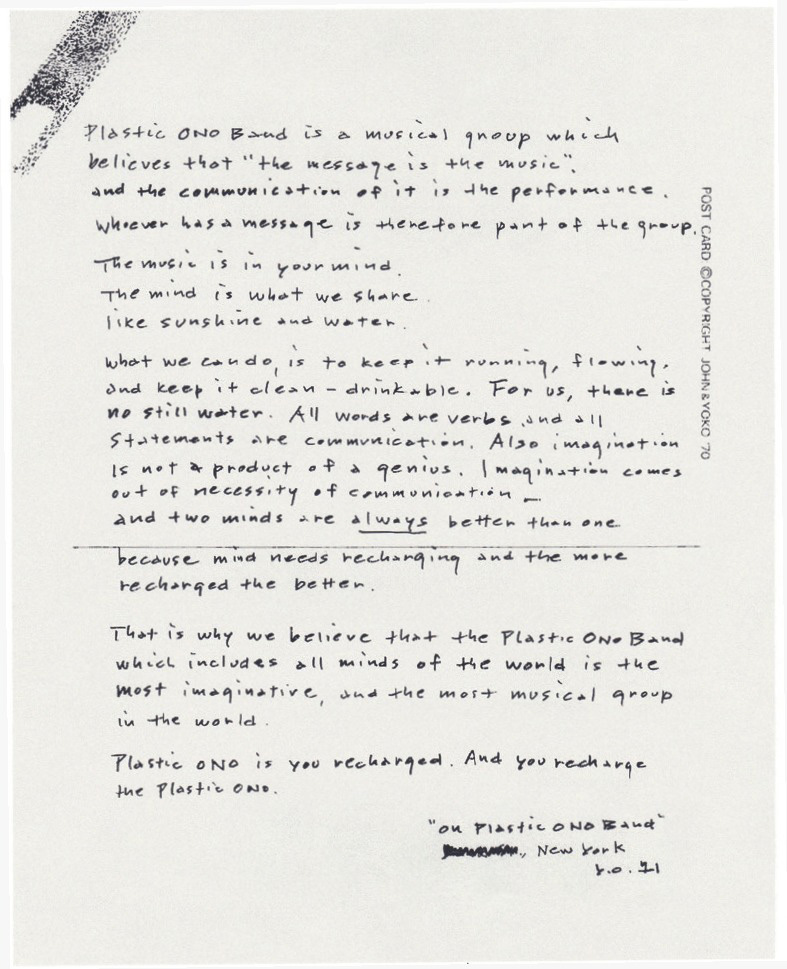 Plastic ONO Band is a musical group which
believes that "the message is the music".
and the communication of it is the performance.
Whoever has a message is therefore part of the group.
The music is in your mind.
The mind is what we share.
like sunshine and water.
What we can do, is to keep it running, flowing,
and keep it clean - drinkable. For us, there is
no still water. All words are verbs and all
statements are communication. Also imagination
is not a product of a genius. Imagination comes
out of necessity of communication —
and two minds are always better than one
because mind needs recharging and the more
recharged the better.
That is why we believe that the Plastic ONO Band
which includes all minds of the world is the
most imaginative, and the most musical group
in the world.
Plastic ONO is you recharged. And you recharge
the Plastic ONO.
"on Plastic ONO Band"
, New York
Y.O. 71
POST CARD ©COPYRIGHT JOHN & YOKO '70